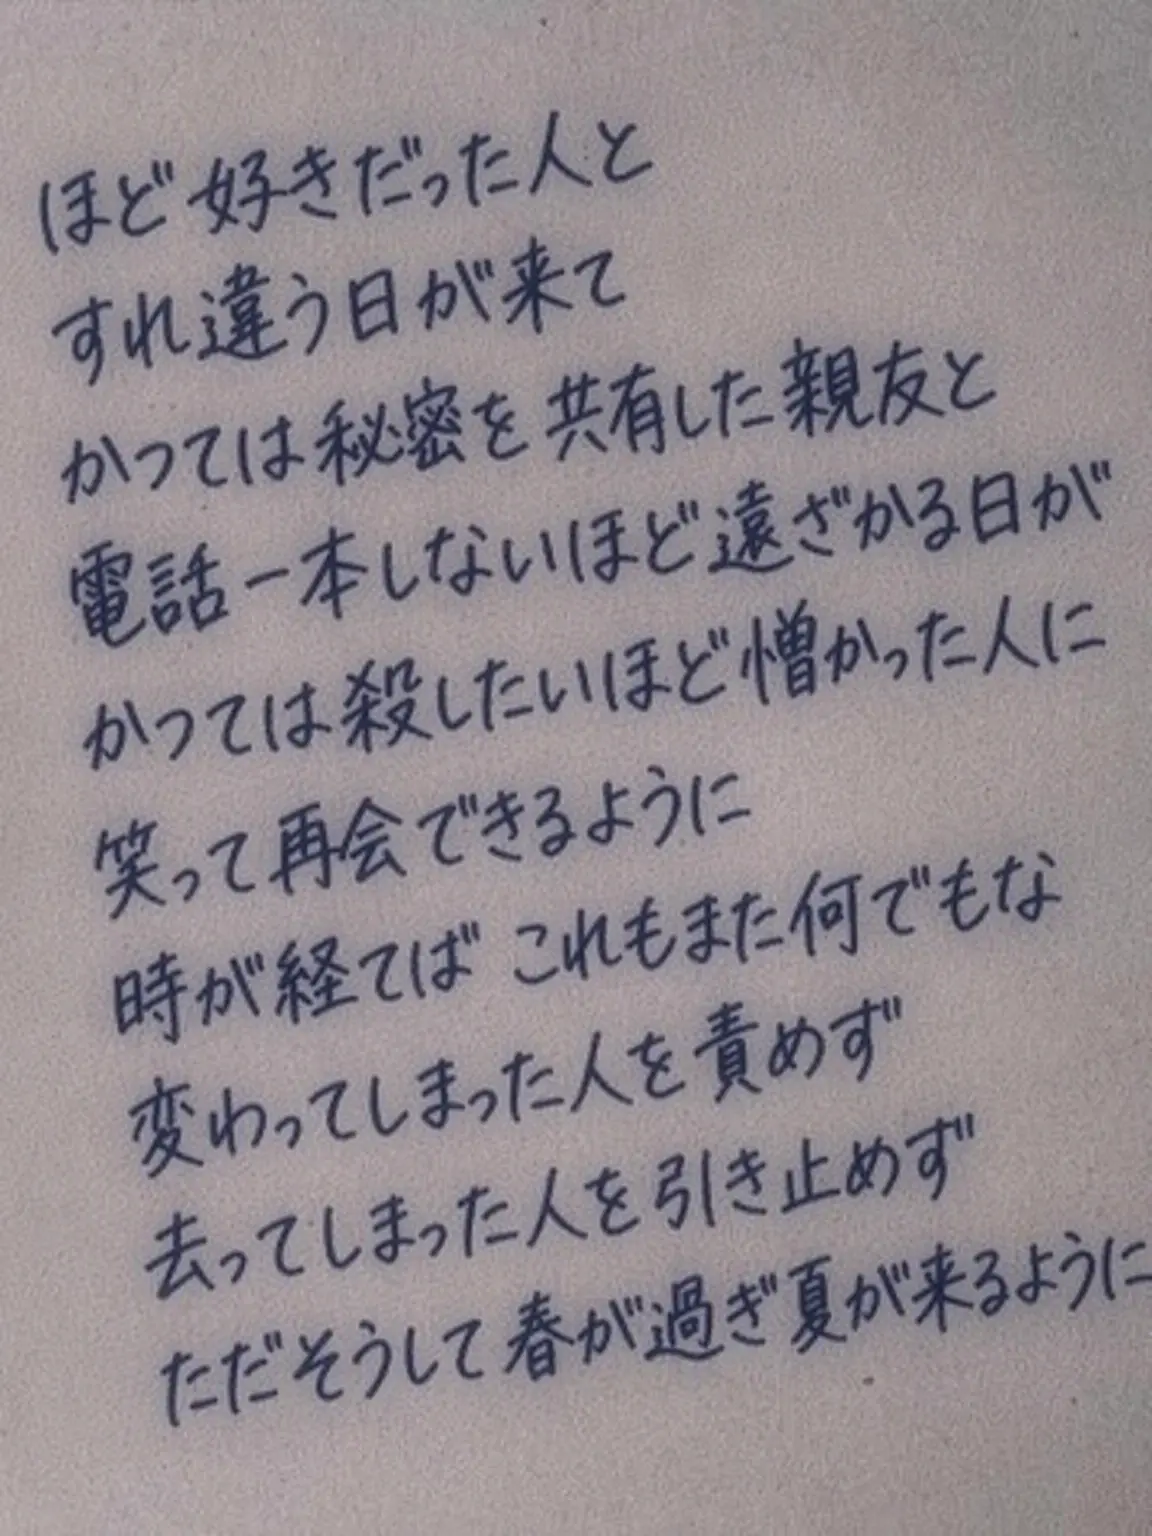 ほど好きだった人と
すれ違う日が来て
かつては秘密を共有した親友と
電話一本しないほど遠ざかる日が
かつては殺したいほど憎かった人に
笑って再会できるように
時が経てば これもまた何でもな
変わってしまった人を責めず
去ってしまった人を引き止めず
ただそうして春が過ぎ夏が来るように